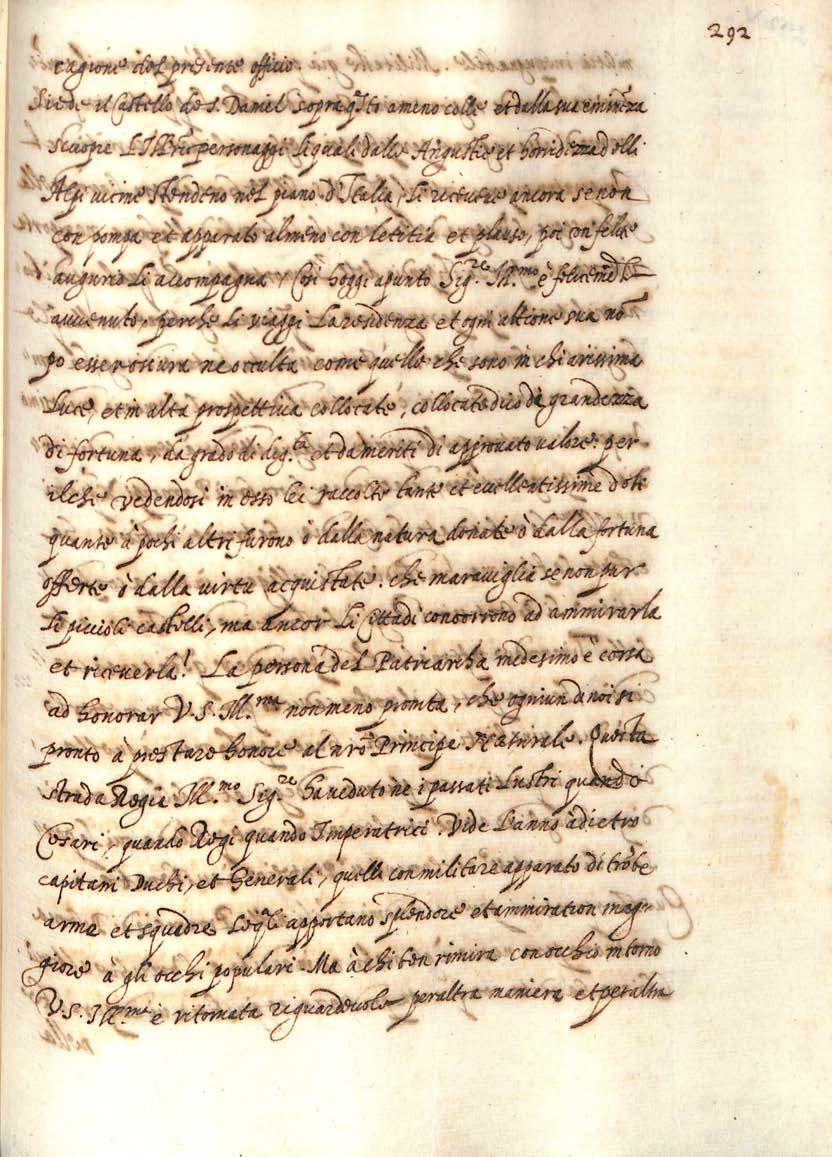 292
cagione del presente officio
Siede il Castello de S. Daniel sopra q.sto ameno colle et dalla sua eminẽza
scuopre personaggi li quali dalle Angustie et horridezza delli
Alpi vicine stendeno nel piano d'Italia, li riceveve ancora se non
con pompa et apparato almeno con letitia et plauso, poi con felice
augurio li accompagna, Cosi hoggi apunto Sig.re Ill.mo è
avvenuto, perche li viaggi La residenza et ogni attione sua nõ
po esser oscura ne occulta come quelle che sono in chiarissima
Luce, et in alta prospettiva collocate, collocate dico da grandezza
di fortuna, da grado di dig.tà et da meriti di approvato valore. per
ilche vedendosi in esso lei raccolte tante et eccellentissime dote
quante à pochi altri furono ò dalla natura donate ò dalla fortuna
offerte ò dalla virtu acquistate. che maraviglia se non pur
li piccioli castelli, ma ancor li Cittadi concorrono ad ammirarla
et riceverla! La persona del Patriarcha medesimo è corsa
ad honorar V.S. Ill.ma non meno pronta, che ogniun di noi si
pronto à prestare honore al nr̃o Principe Naturale. Questa
strada Regia Ill.mo Sig.re ha veduto ne i passati Lustri quando
Cesari, quando Regi quando Imperatrici. Vide L'anno à dietro
capitani Duchi, et Generali, quelli con militare apparato di trõbe
arme et squadre Leq.li apportano splendore et ammiration mag=
giore à gli occhi populari. Ma à chi ben rimira con occhio intorno
V.S. Ill.ma è ritornata riguardevole per altra maniera et per altra
nella